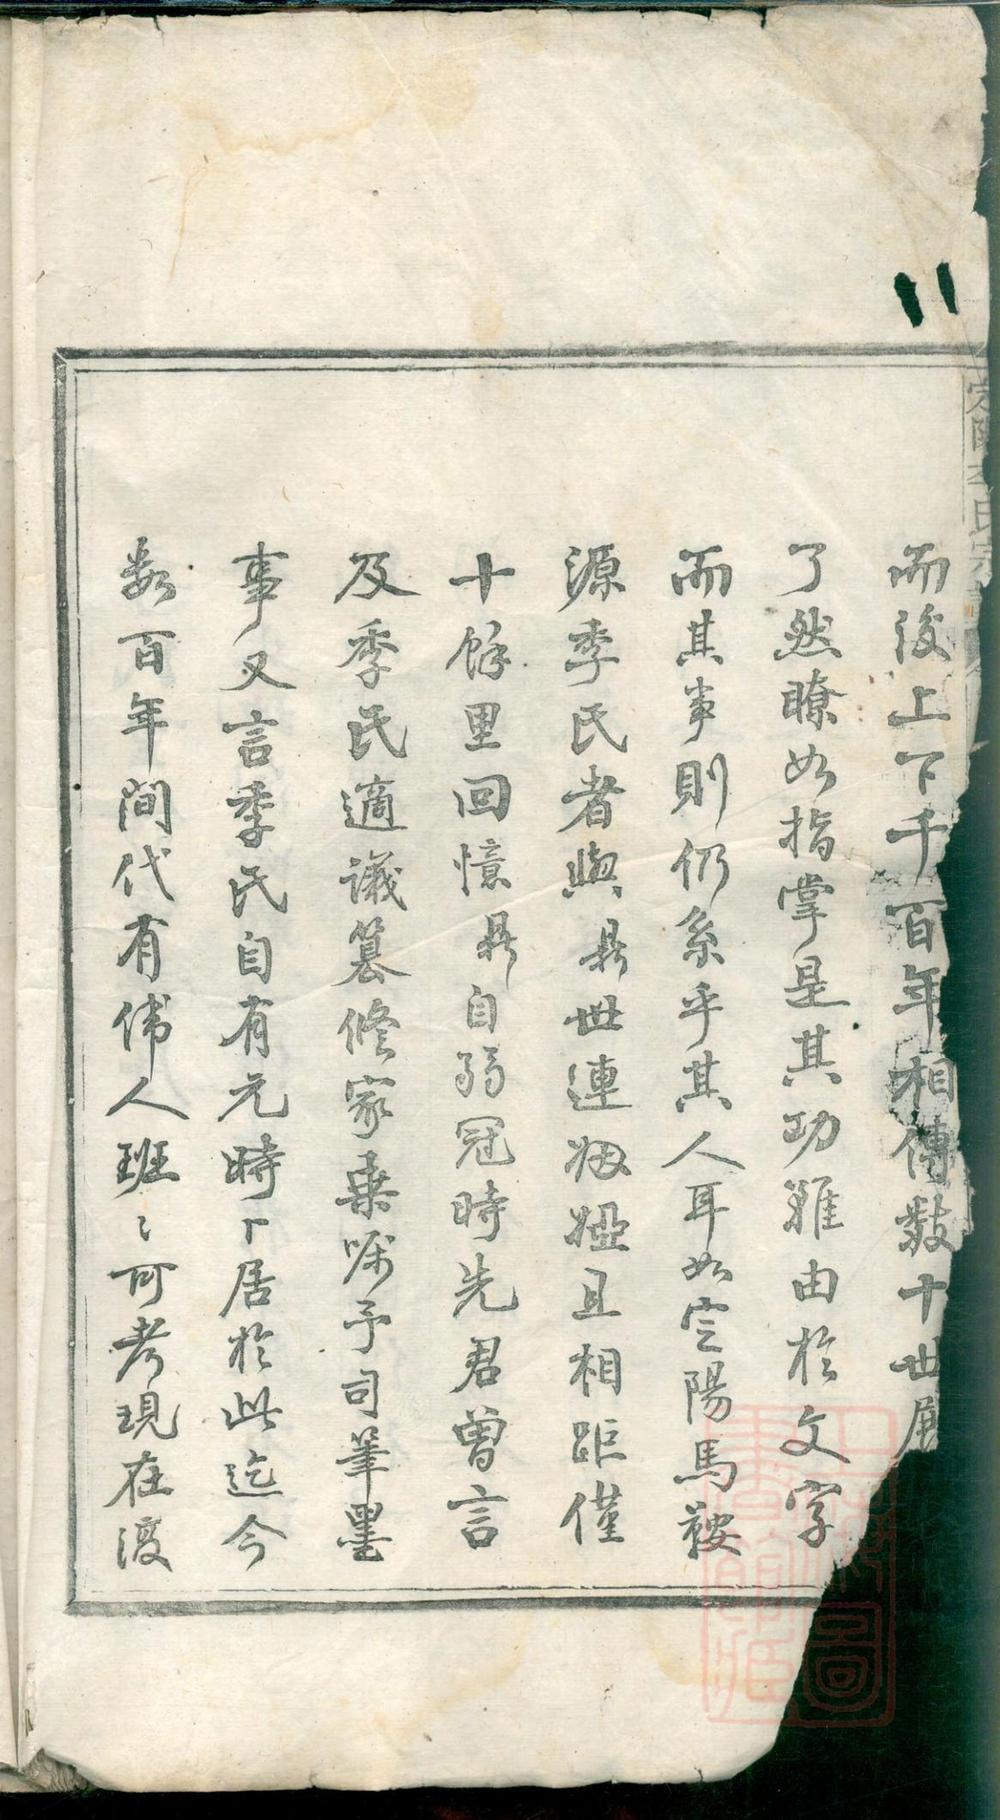 而後上下千百年相傳數十世展
了然瞭如指掌是其功雖由於文字
而其事則仍系乎其人耳如定陽馬鞍
源季氏者與㫷世連姻婭且相距僅
十餘里回憶㫷自弱冠時先君曾言
及季氏適議纂修家乘囑予司筆墨
事又言季氏自有元時卜居於此迄今
数百年間代有偉人班〻可考現在渡